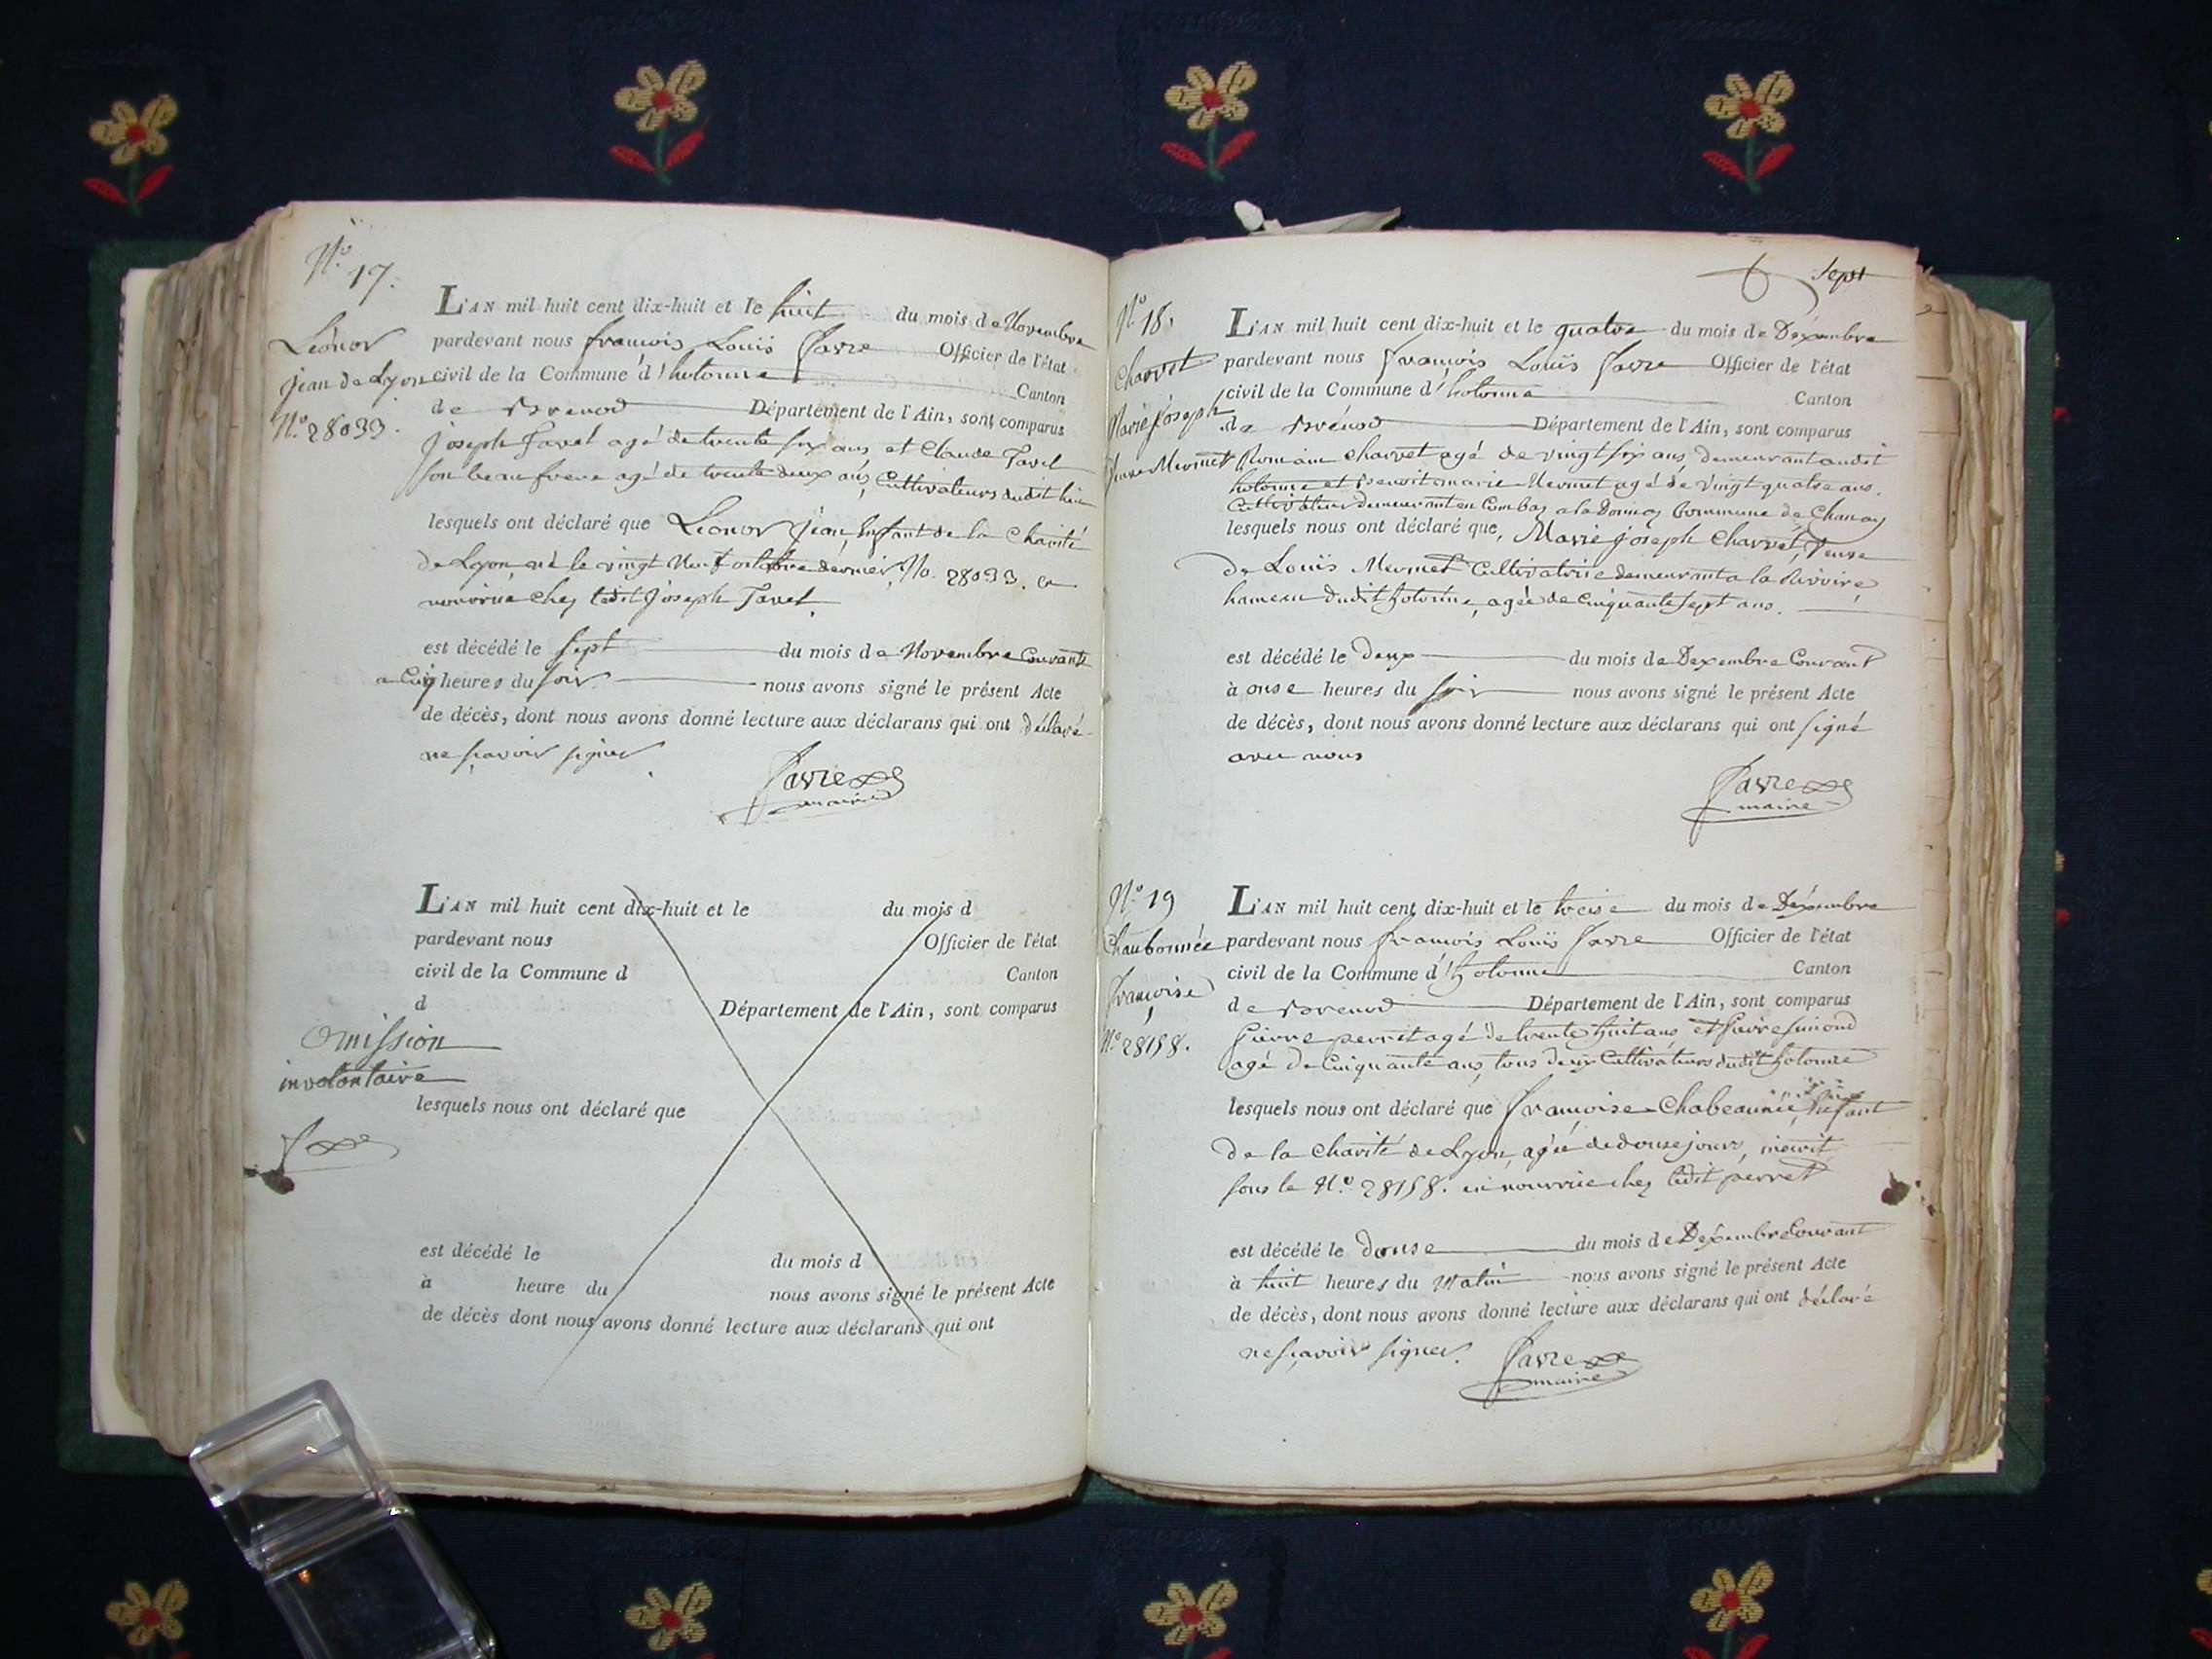 N.o 17.
Léonor
jean de Lyon
N.o 28033.
L'AN mil huit cent dix-huit et le huit du mois de Novembre
pardevant nous françois Louïs favre Officier de l'état
civil de la Commune d'hotonne Canton
de Brenod Département de l'Ain, sont comparus
joseph Tavel agé de trente six ans et Claude Tavel
son beau frere agé de trente deux ans, Cultivateurs dudit lieu
lesquels ont déclaré que Léonor jean, Enfant de la Charité
de Lyon, né le vingt neuf octobre dernier, No. 28033. en
nourrice chez ledit joseph Tavel.
est décédé le sept du mois de Novembre Courant
a Cinq heures du soir nous avons signé le présent Acte
de décès, dont nous avons donné lecture aux déclarans qui ont déclaré
ne sçavoir signer
favre
maire
L'AN mil huit cent dix-huit et le du mois d
pardevant nous Officier de l'état
civil de la Commune d Canton
d Département de l'Ain, sont comparus
omission
involontaire
lesquels nous ont déclaré que
est décédé le du mois d
à heure du nous avons signé le présent Acte
de décès dont nous avons donné lecture aux déclarans qui ont
6 sept
N.o 18.
Charvet
Marie joseph
veuve Mermet
L'AN mil huit cent dix-huit et le quatre du mois de Décembre
pardevant nous françois Louïs favre Officier de l'état
civil de la Commune d'hotonne Canton
de Brénod Département de l'Ain, sont comparus
Romain Charvet agé de vingt six ans, demeurant audit
hotonne et Benoit marie Mermet agé de vingt quatre ans.
Cultivateur demeurant en Combaz a la Commune de Chanay
lesquels nous ont déclaré que, Marie joseph Charvet, Veuve
de Louïs Mermet Cultivatrice demeurant a la Rivoire
hameau dudit hotonne, agée de cinquante sept ans.
est décédé le deux du mois de Dexembre Courant
à onse heures du soir nous avons signé le présent Acte
de décès, dont nous avons donné lecture aux déclarans qui ont signé
avec nous
favre
maire
N.o 19
Chaubonnée
françoise
N.o 28158.
L'AN mil huit cent dix-huit et le treise du mois de Décembre
pardevant nous françois Louïs favre Officier de l'état
civil de la Commune d'hotonne Canton
de Brenod Département de l'Ain, sont comparus
Pierre perret agé de trente huit ans, et Pierre
agé de Cinquante ans, tous deux Cultivateurs dudit hotonne
lesquels nous ont déclaré que françoise Chabeaunée, Enfant
de la Charité de Lyon, agée de douse jours, inscrit
sous le N.o 28158. en nourrice chez ledit perret
est décédé le douse du mois de Dexembre Courant
à huit heures du Matin nous avons signé le présent Acte
de décès, dont nous avons donné lecture aux déclarans qui ont déclaré
ne sçavoir signer.
favre
maire